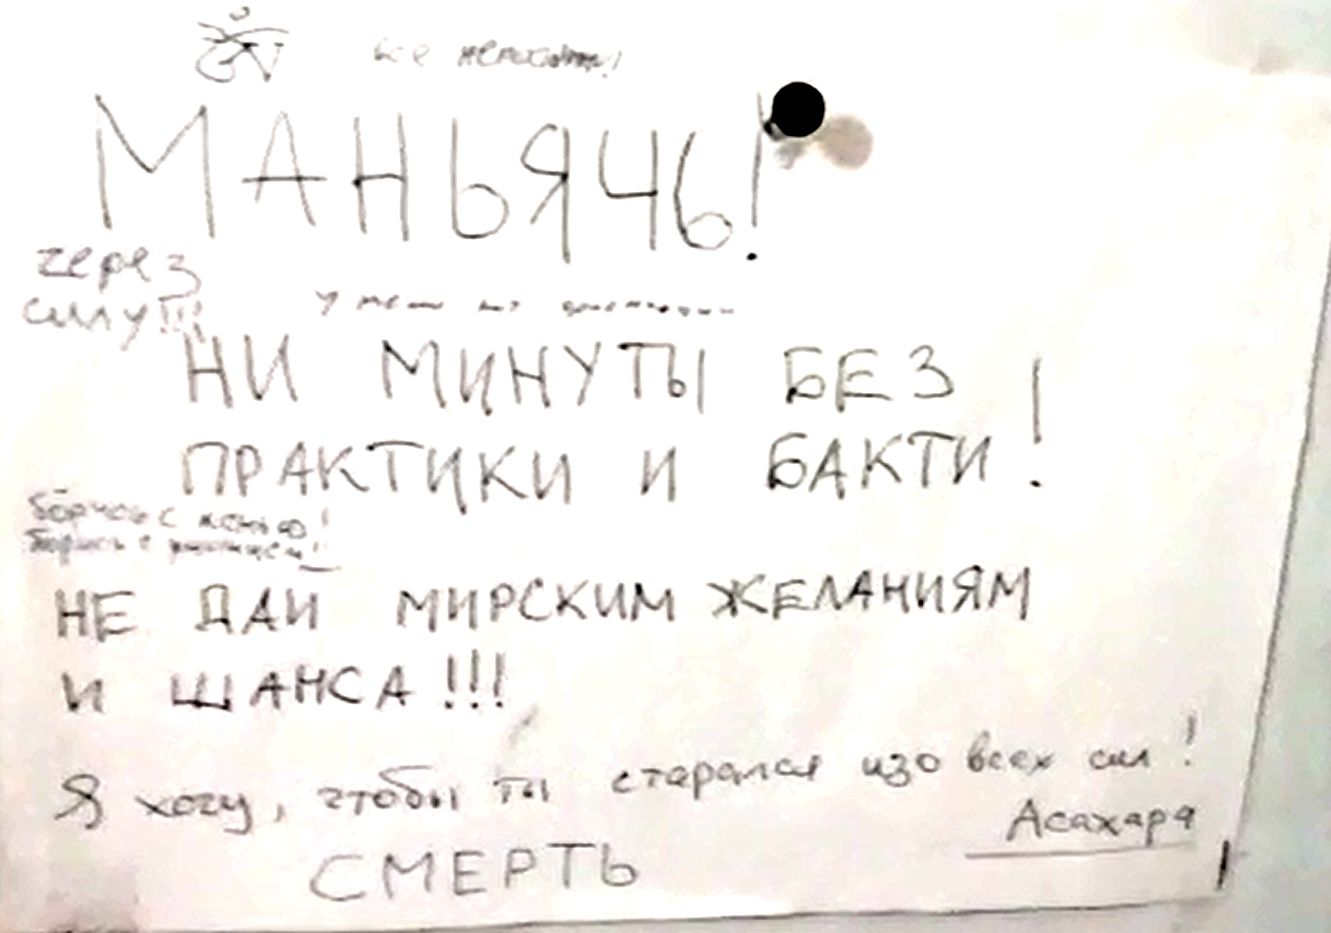 все
МАНЬЯЧЬ!
через
силу!!!
у меня нет
НИ МИНУТЫ БЕЗ
ПРАКТИКИ И БАКТИ!
борись с ленью!
борись с
НЕ ДАЙ МИРСКИМ ЖЕЛАНИЯМ
И ШАНСА!!!
Я хочу, чтобы ты старался изо всех сил!
Асахара
СМЕРТЬ